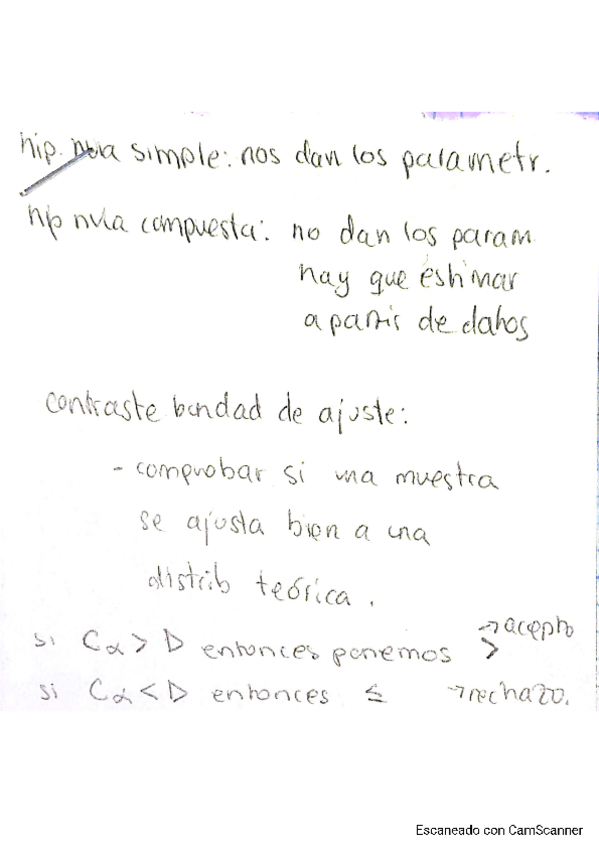 hip. nula simple: nos dan los parametr.
hip nula compuesta: no dan los param
hay que estimar
a partir de datos
contraste bondad de ajuste:
- comprobar si una muestra
se ajusta bien a una
distrib teórica.
si Cα > D entonces ponemos > → acepto
si Cα < D entonces ≤ → rechazo.
Escaneado con CamScanner